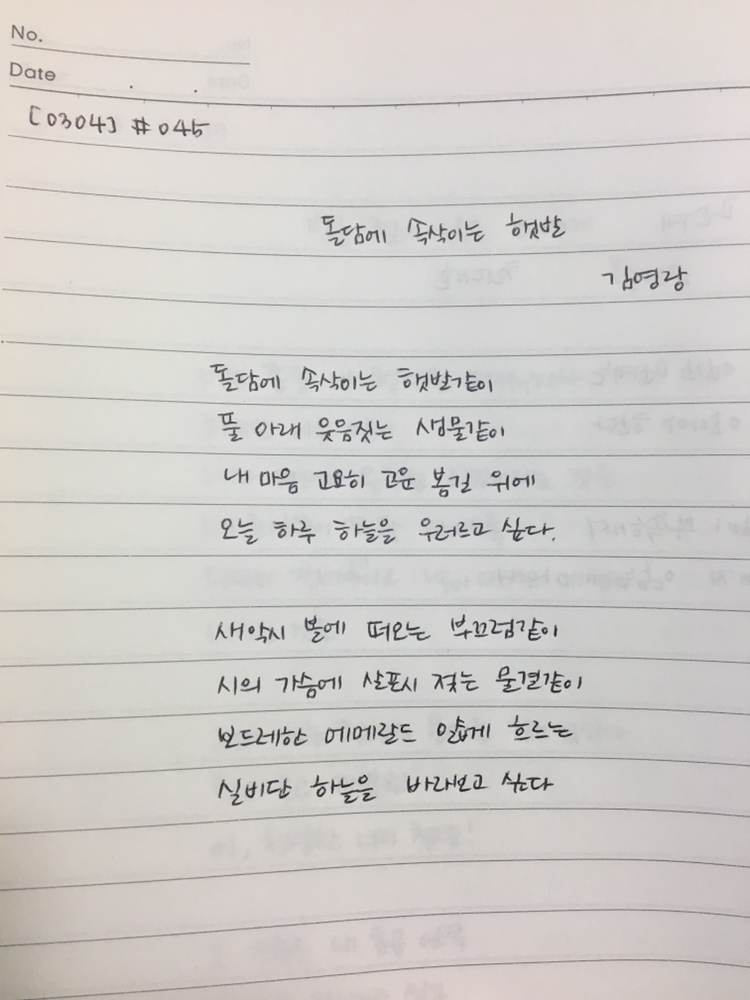 No.
Date . .
[0304] #045
돌담에 속삭이는 햇발
김영랑
돌담에 속삭이는 햇발같이
풀 아래 웃음짓는 샘물같이
내 마음 고요히 고운 봄길 위에
오늘 하루 하늘을 우러르고 싶다.
새악시 볼에 떠오는 부끄럼같이
시의 가슴에 살포시 젖는 물결같이
보드레한 에메랄드 얇게 흐르는
실비단 하늘을 바라보고 싶다